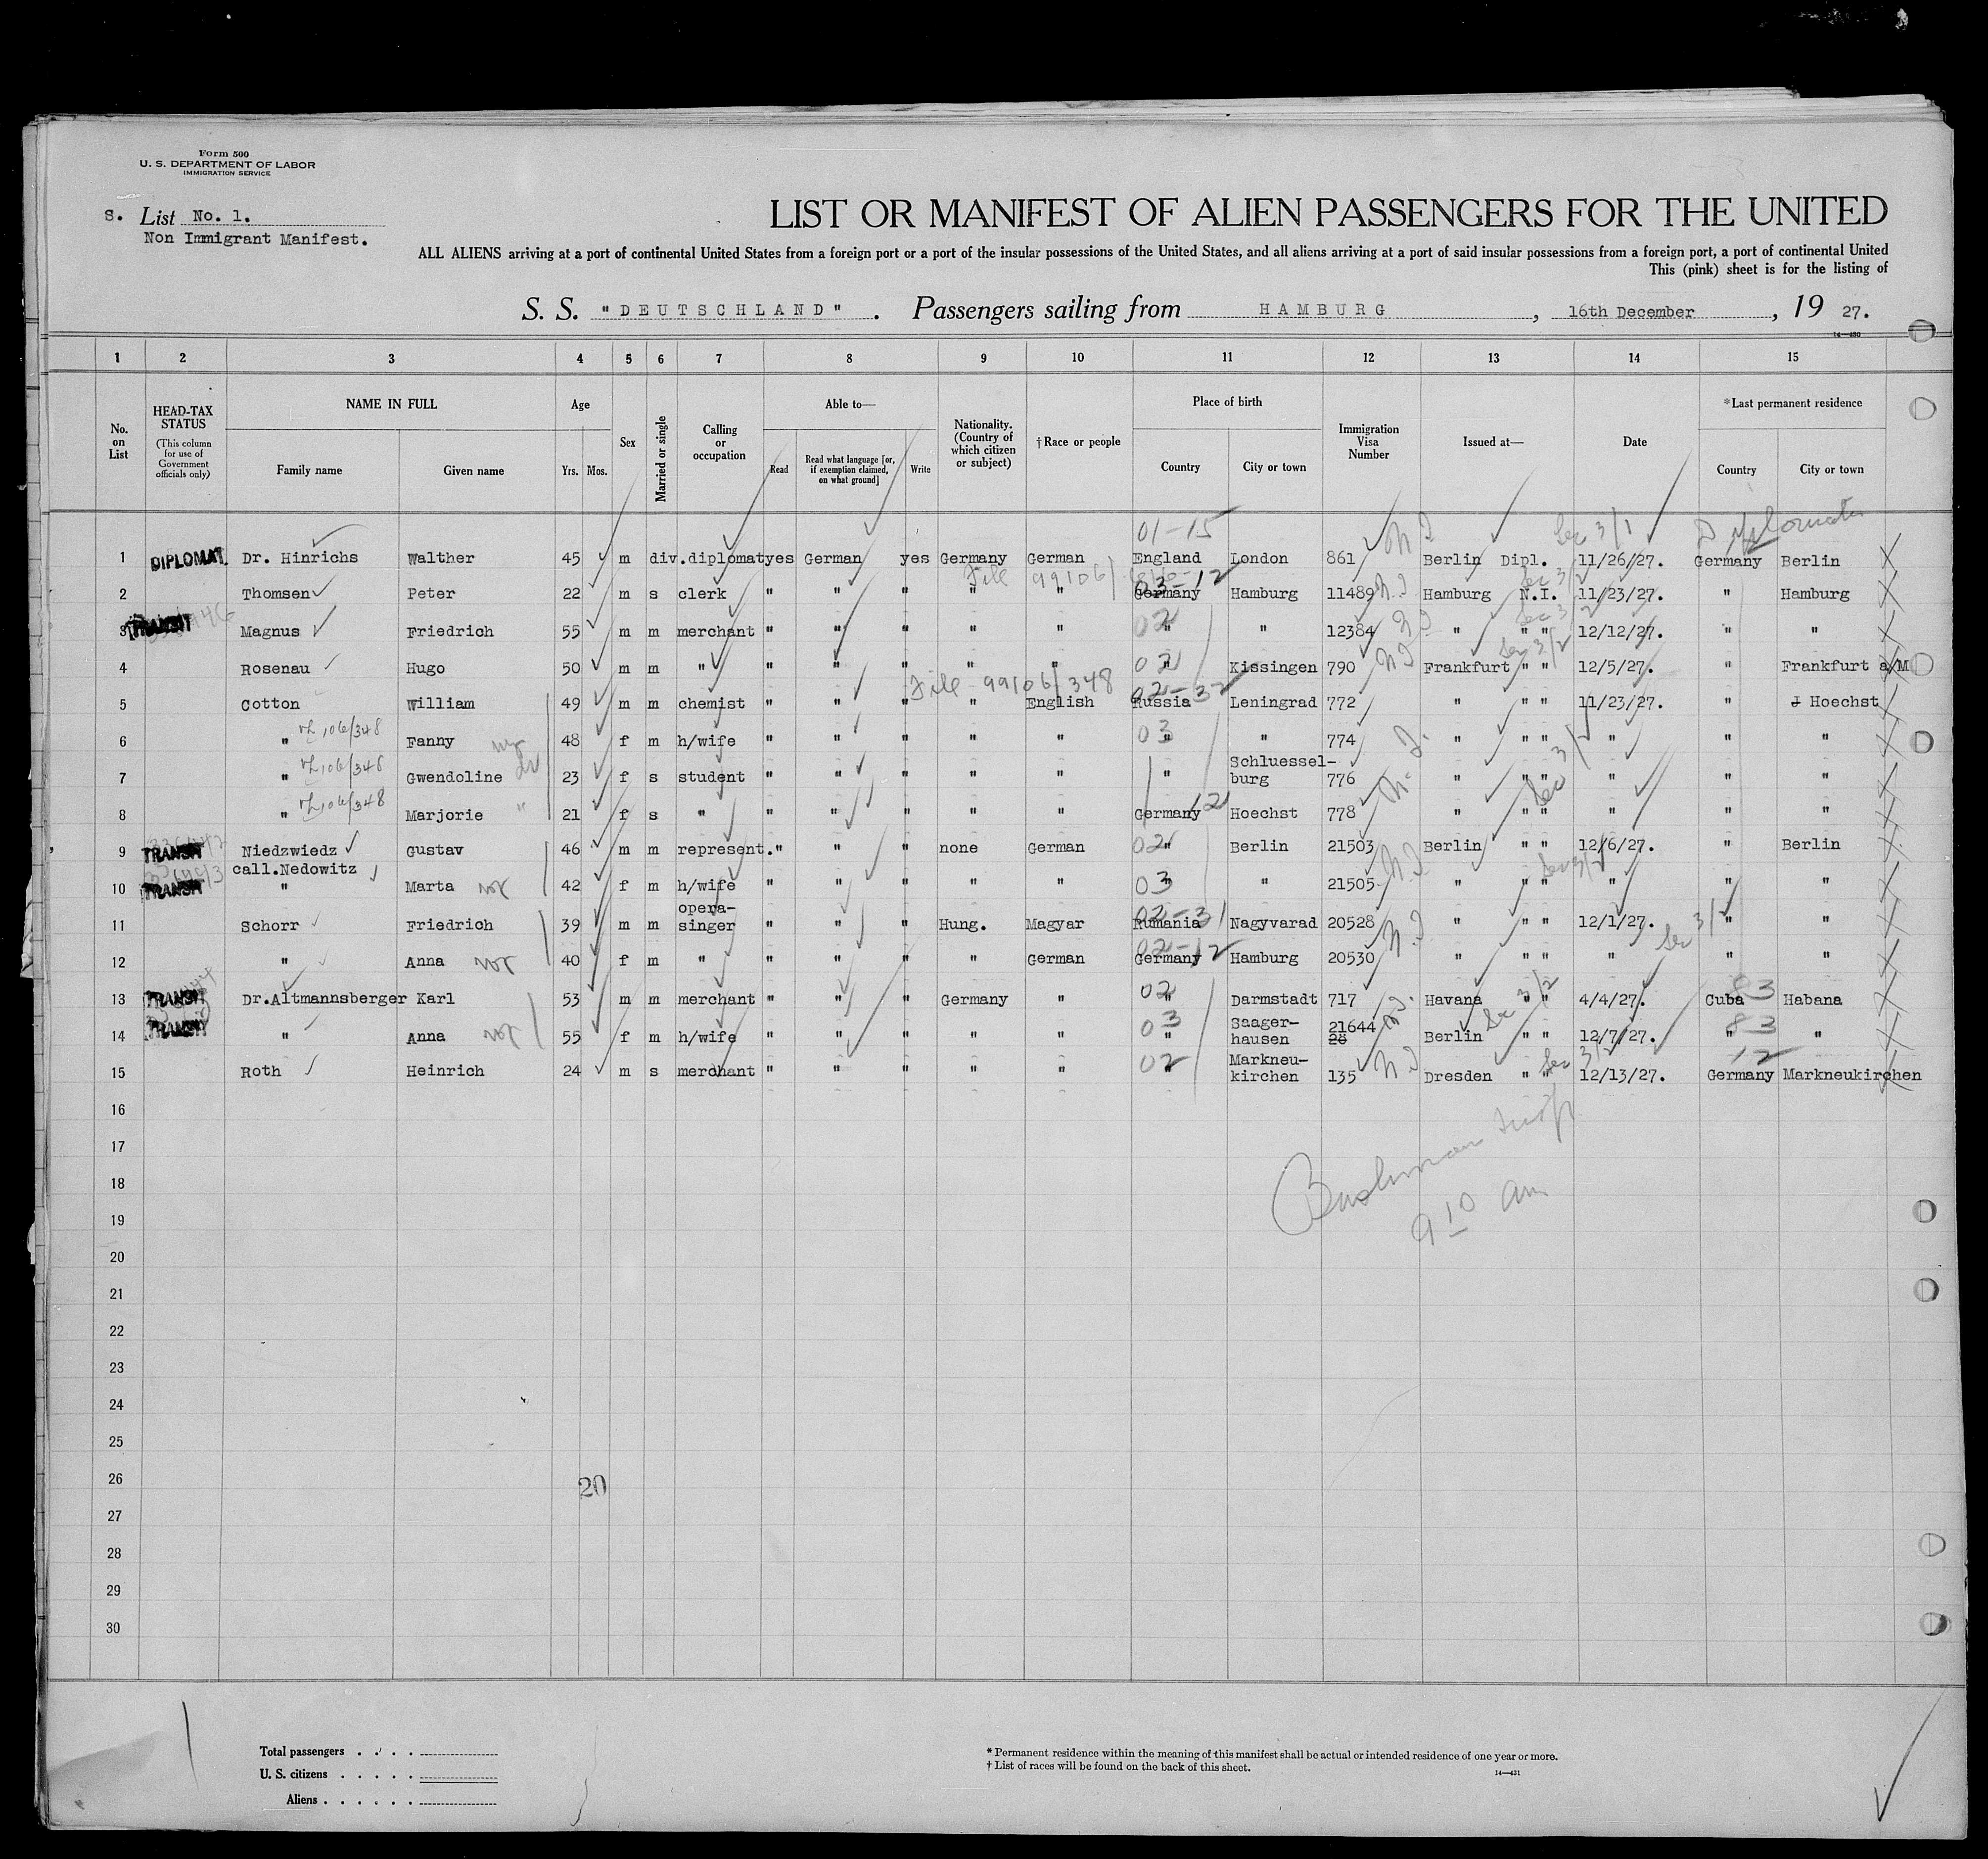 Form 500
U. S. DEPARTMENT OF LABOR
IMMIGRATION SERVICE
S. List No. 1.
Non Immigrant Manifest.
LIST OR MANIFEST OF ALIEN PASSENGERS FOR THE UNITED
ALL ALIENS arriving at a port of continental United States from a foreign port or a port of the insular possessions of the United States, and all aliens arriving at a port of said insular possessions from a foreign port, a port of continental United
This (pink) sheet is for the listing of
S. S. "DEUTSCHLAND". Passengers sailing from HAMBURG, 16th December, 19 27.
14—430
1 2 3 4 5 6 7 8 9 10 11 12 13 14 15
No. on List
HEAD-TAX STATUS
(This column for use of Government officials only)
NAME IN FULL
Family name Given name
Age
Yrs. Mos.
Sex
Married or single
Calling or occupation
Able to—
Read
Read what language [or, if exemption claimed, on what ground]
Write
Nationality. (Country of which citizen or subject)
†Race or people
Place of birth
Country City or town
Immigration Visa Number
Issued at—
Date
*Last permanent residence
Country City or town
01-15 N I Sec 3/1 Diplomatic
1 DIPLOMAT. Dr. Hinrichs Walther 45 m div. diplomat yes German yes Germany German England London 861 Berlin Dipl. 11/26/27. Germany Berlin
File 99106/ 03-12 N.I Sec 3/2
2 Thomsen Peter 22 m s clerk " " " " " Germany Hamburg 11489 Hamburg N.I. 11/23/27. " Hamburg
02 N I Sec 3/2
3 TRANSIT Magnus Friedrich 55 m m merchant " " " " " " " 12384 " " " 12/12/27. " "
02 N I Sec 3/2
4 Rosenau Hugo 50 m m " " " " " " " Kissingen 790 Frankfurt " " 12/5/27. " Frankfurt a/M
File 99106/348 02-32
5 Cotton William 49 m m chemist " " " " English Russia Leningrad 772 " " " 11/23/27. " Hoechst
106/348 03 N. I.
6 " Fanny 48 f m h/wife " " " " " " " 774 " " " " " "
106/348 Sec 3/2
7 " Gwendoline 23 f s student " " " " " " Schluessel-
burg 776 " " " " " "
106/348 12
8 " Marjorie " 21 f s " " " " " " Germany Hoechst 778 " " " " " "
02 N I
9 TRANSIT Niedzwiedz Gustav 46 m m represent. " " " none German " Berlin 21503 Berlin " " 12/6/27. " Berlin
call.Nedowitz
03 Sec 3/2
10 TRANSIT " Marta 42 f m h/wife " " " " " " " 21505 " " " " " "
02-31 N.I Sec 3/2
11 Schorr Friedrich 39 m m opera-
singer " " " Hung. Magyar Rumania Nagyvarad 20528 " " " 12/1/27. " "
02-12
12 " Anna 40 f m " " " " " German Germany Hamburg 20530 " " " " " "
02 N.I. Sec 3/2 83
13 TRANSIT Dr.Altmannsberger Karl 53 m m merchant " " " Germany " " Darmstadt 717 Havana " " 4/4/27. Cuba Habana
03 83
14 TRANSIT " Anna 55 f m h/wife " " " " " " Saager-
hausen 21644
28 Berlin " " 12/7/27. " "
02 N I Sec 3/2 12
15 Roth Heinrich 24 m s merchant " " " " " " Markneu-
kirchen 135 Dresden " " 12/13/27. Germany Markneukirchen
16
17
Bushman Insp
18
9 10 am
19
20
21
22
23
24
25
26
20
27
28
29
30
Total passengers
U. S. citizens
Aliens
* Permanent residence within the meaning of this manifest shall be actual or intended residence of one year or more.
† List of races will be found on the back of this sheet.
14—431